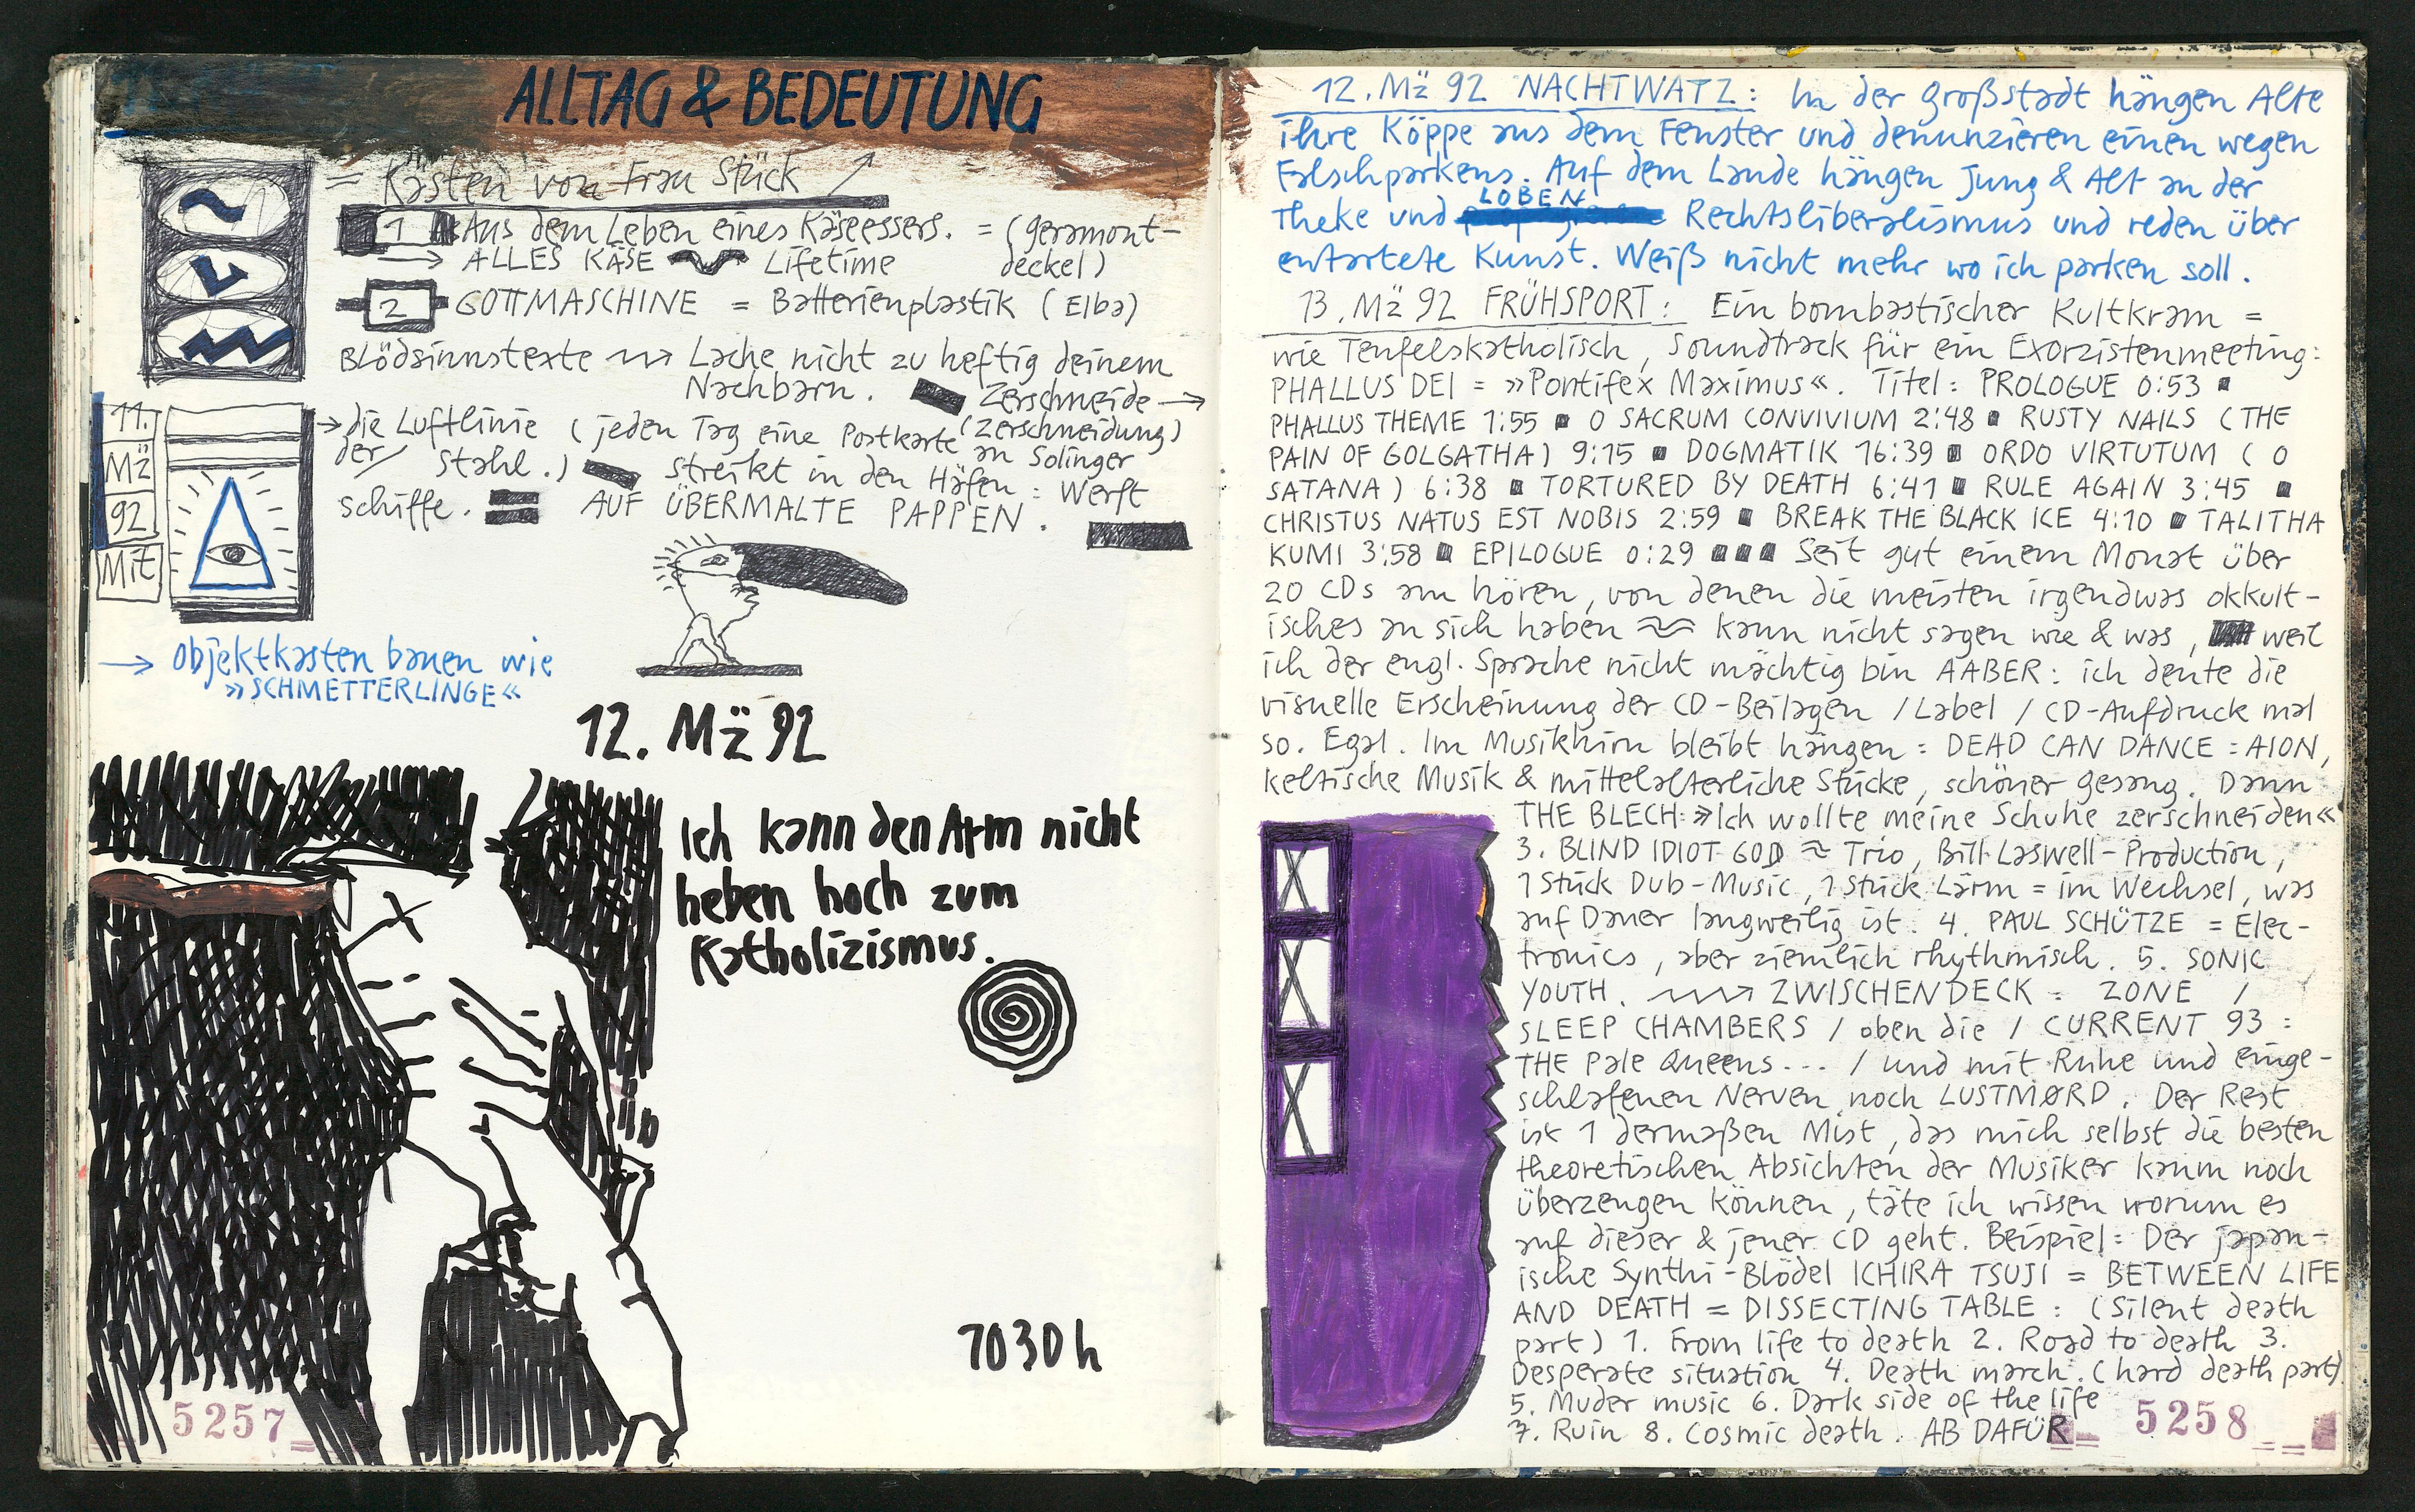 ALLTAG & BEDEUTUNG
= Kästen von Frau Stück
1 Aus dem Leben eines Käseessers. = (geramont-
ALLES KÄSE Lifetime deckel)
2 GOTTMASCHINE = Batterienplastik (Elba)
Blödsinnstexte → Lache nicht zu heftig deinem
Nachbarn. Zerschneide →
→ die Luftlinie (jeden Tag eine Postkarte (Zerschneidung)
der Stahl.) an Solinger
streikt in den Häfen: Werft
schiffe. = AUF ÜBERMALTE PAPPEN.
11.
Mz
92
Mit
→ Objektkasten bauen wie
»SCHMETTERLINGE«
12. Mz 92
Ich kann den Arm nicht
heben hoch zum
Katholizismus.
1030h
5257
12. Mz 92 NACHTWATZ: In der Großstadt hängen Alte
ihre Köppe aus dem Fenster und denunzieren einen wegen
Falschparkens. Auf dem Lande hängen Jung & Alt an der
Theke und LOBEN Rechtsliberalismus und reden über
entartete Kunst. Weiß nicht mehr wo ich parken soll.
13. Mz 92 FRÜHSPORT: Ein bombastischer Kultkram =
wie Teufelskatholisch, Soundtrack für ein Exorzistenmeeting:
PHALLUS DEI = »Pontifex Maximus«. Titel: PROLOGUE 0:53 ▪
PHALLUS THEME 1:55 ▪ O SACRUM CONVIVIUM 2:48 ▪ RUSTY NAILS (THE
PAIN OF GOLGATHA) 9:15 ▪ DOGMATIK 16:39 ▪ ORDO VIRTUTUM (O
SATANA) 6:38 ▪ TORTURED BY DEATH 6:41 ▪ RULE AGAIN 3:45 ▪
CHRISTUS NATUS EST NOBIS 2:59 ▪ BREAK THE BLACK ICE 4:10 ▪ TALITHA
KUMI 3:58 ▪ EPILOGUE 0:29 ▪▪▪ Seit gut einem Monat über
20 CDs am hören, von denen die meisten irgendwas okkult-
isches an sich haben ≈ kann nicht sagen wie & was, weil
ich der engl. Sprache nicht mächtig bin AABER: ich deute die
visuelle Erscheinung der CD-Beilagen / Label / CD-Aufdruck mal
so. Egal. Im Musikhirn bleibt hängen: DEAD CAN DANCE: AION,
keltische Musik & mittelalterliche Stücke, schöner Gesang. Dann
THE BLECH: »Ich wollte meine Schuhe zerschneiden«
3. BLIND IDIOT GOD ≈ Trio, Bill Laswell-Production,
1 Stück Dub-Music, 1 Stück Lärm = im Wechsel, was
auf Dauer langweilig ist. 4. PAUL SCHÜTZE = Elec-
tronics, aber ziemlich rhythmisch. 5. SONIC
YOUTH. → ZWISCHENDECK: ZONE /
SLEEP CHAMBERS / oben die / CURRENT 93:
THE Pale Queens... / und mit Ruhe und einge-
schlafenen Nerven noch LUSTMØRD. Der Rest
ist 1 dermaßen Mist, das mich selbst die besten
theoretischen Absichten der Musiker kaum noch
überzeugen können, täte ich wissen worum es
auf dieser & jener CD geht. Beispiel: Der japan-
ische Synthi-Blödel ICHIRA TSUJI = BETWEEN LIFE
AND DEATH = DISSECTING TABLE: (Silent death
part) 1. From life to death 2. Road to death 3.
Desperate situation 4. Death march. (hard death part)
5. Muder music 6. Dark side of the life
7. Ruin 8. Cosmic death. AB DAFÜR
5258